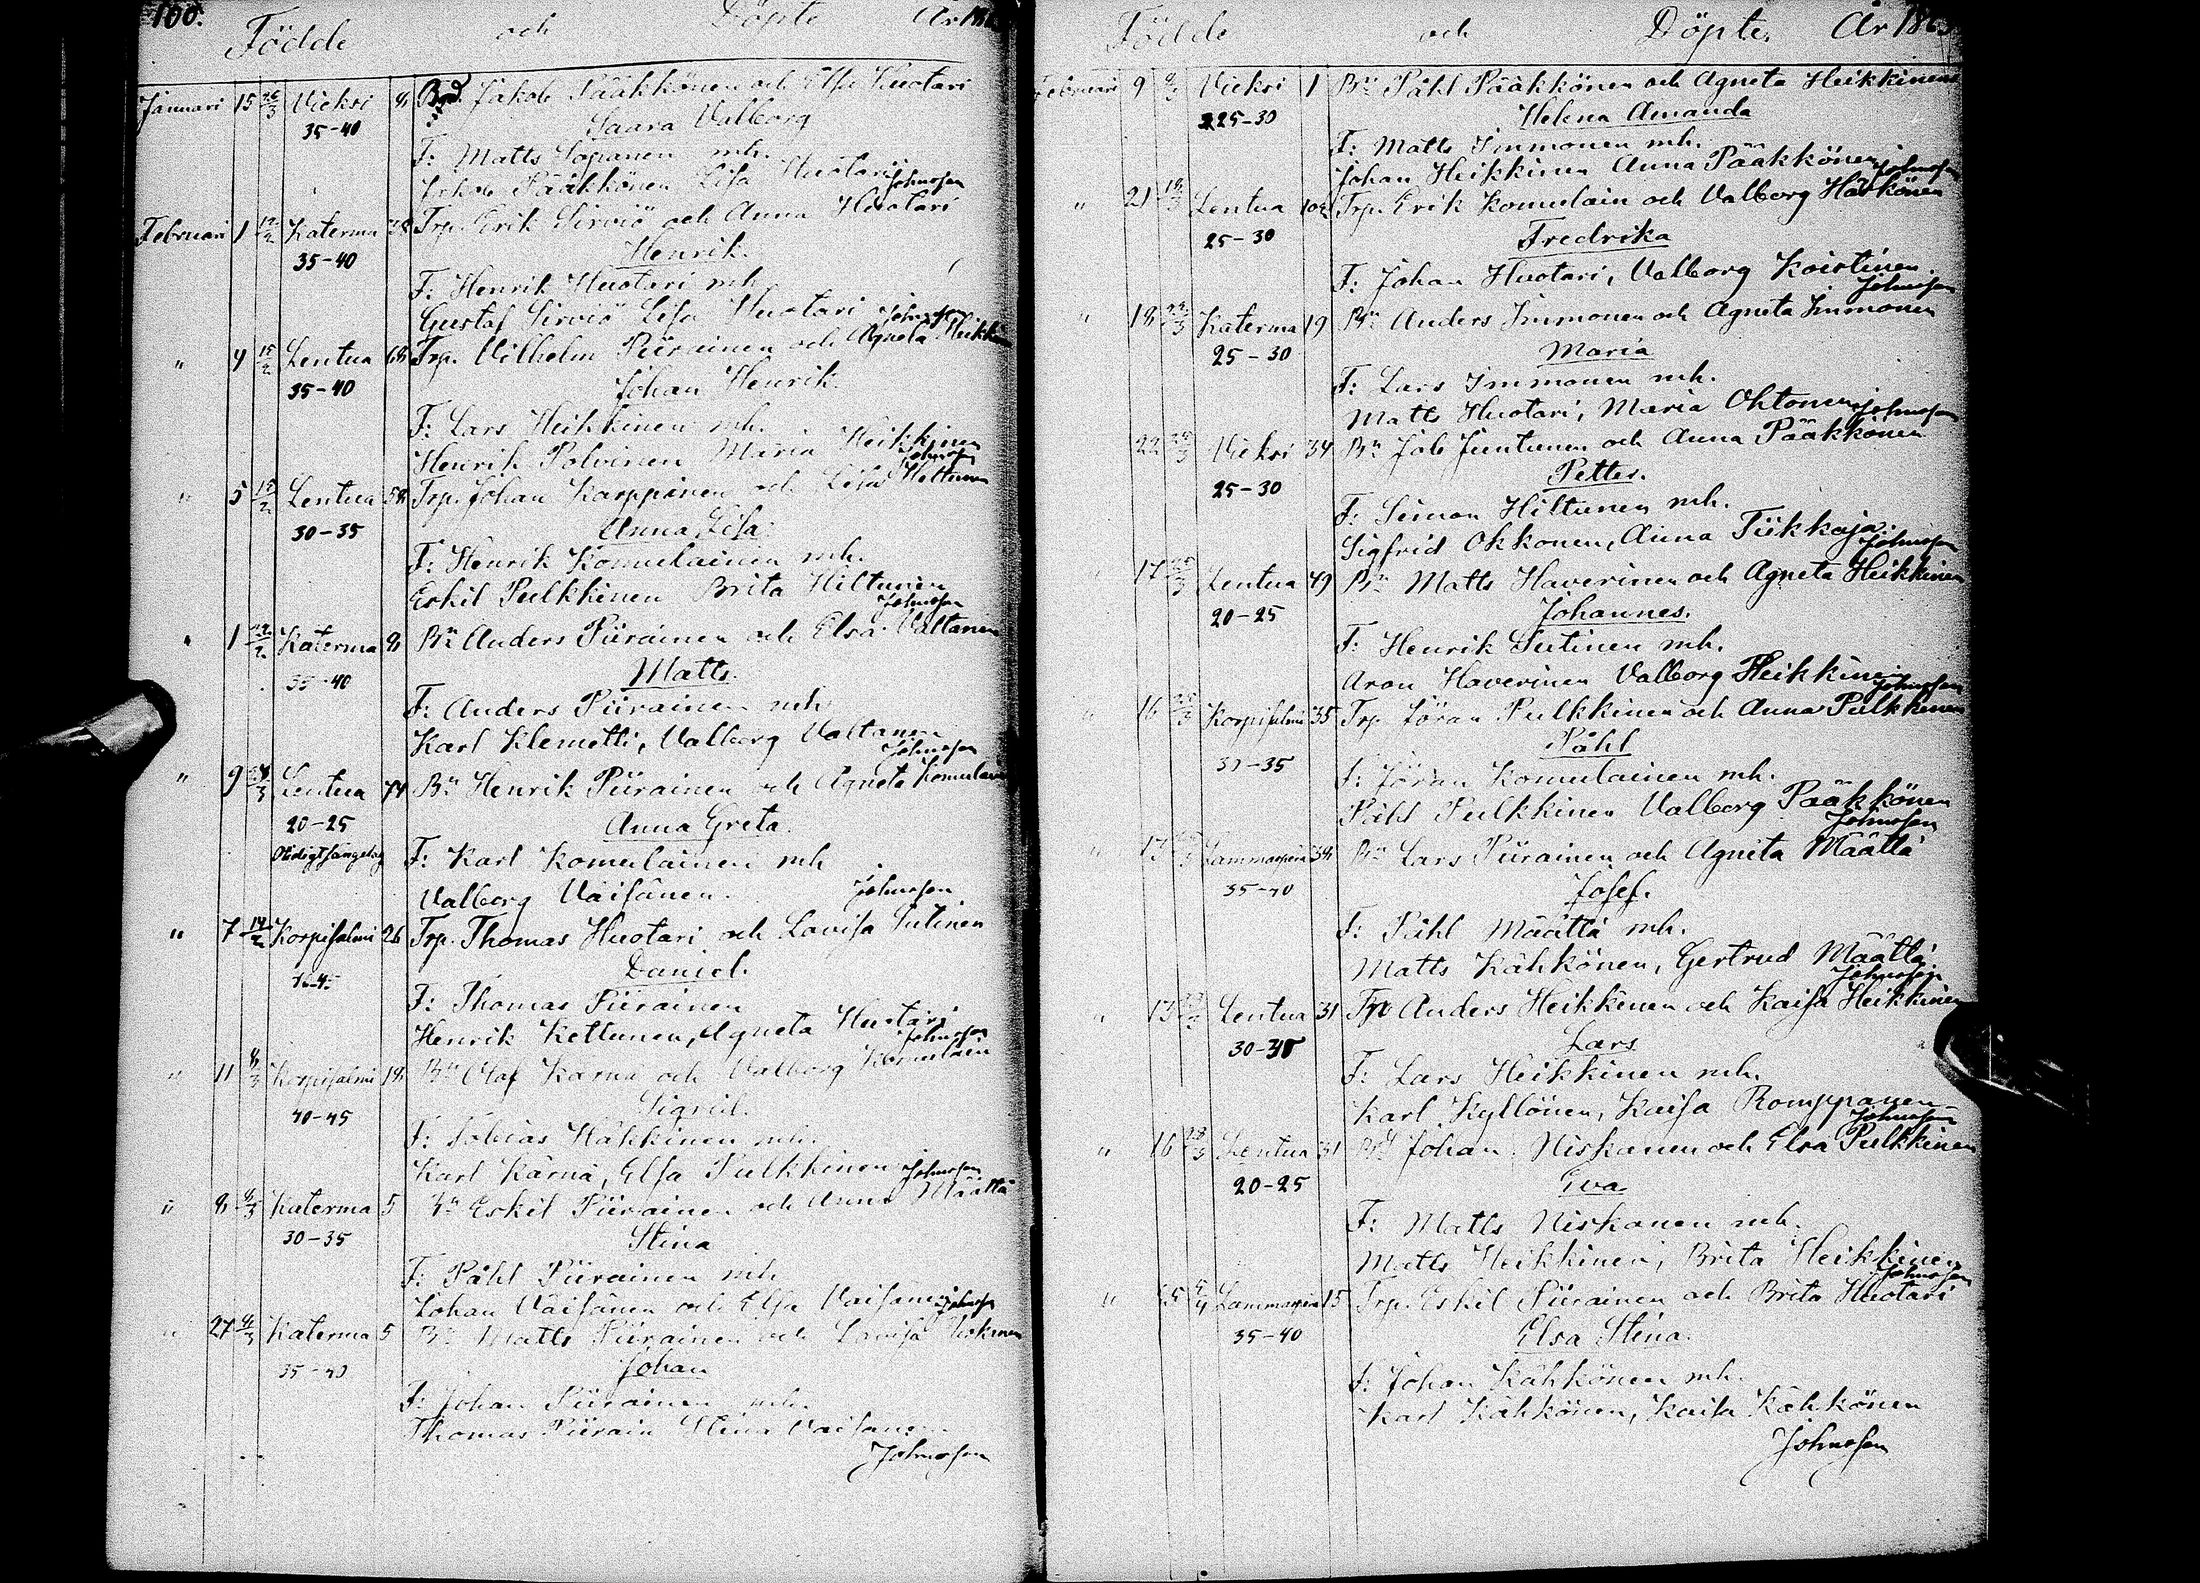 100.
Födde och Döpte År 18
Januari 15 26/3 Vieksi 8 Bgd. Jakob Pääkkönen och Elsa Huotari
35-40 Saara Valborg
F: Matts Sopanen mh.
Jakob Pääkkönen Lisa Huotari Johnsson
Februari 1 12/2 Katerma 28 Trp. Erik Sirviö och Anna Huotari
35-40 Henrik.
F: Henrik Huotari mh.
Gustaf Sirviö Lisa Huotari Johnsson
" 4 15/2 Lentua 68 Trp. Vilhelm Piirainen och Agneta Heikkin
35-40 Johan Henrik.
F: Lars Heikkinen mh.
Henrik Polvinen Maria Heikkinen
Johnsson
" 5 15/2 Lentua 58 Trp. Johan Karppinen och Lisa Heltunen
30-35 Anna Lisa.
F: Henrik Komulainen mh.
Eskil Pulkkinen Brita Hiltunen
Johnsson
" 1 22/2 Katerma 8 Bn Anders Piirainen och Elsa Valtanen
35-40 Matts.
F: Anders Piirainen mh.
Karl Klemetti, Valborg Valtanen
Johnsson
" 9 Lentua 74 Bn Henrik Piirainen och Agneta Komulain
20-25 Anna Greta.
F: Karl Komulainen mh
Valborg Väisänen. Johnsson
" 7 14/2 Korpisalmi 26 Trp. Thomas Huotari och Lovisa Sutinen
Daniel.
F: Thomas Piirainen
Henrik Kettunen, Agneta Huotari
Johnsson
" 11 8/3 Korpisalmi 18 Bn Olof Karna och Valborg Komulain
40-45 Sigrid.
F: Tobias Häkkinen mh.
Karl Kärnä, Elsa Pulkkinen Johnsson
" 8 8/3 Katerma 5 Bn Eskil Piirainen och Anna Määttä
30-35 Stina
F: Påhl Piirainen mh
Johan Väisänen och Elsa Vaisanen Johnsson
" 27 8/3 Katerma 5 Bn Matts Piirainen och Lovisa
35-40 Johan
F: Johan Piirainen mh.
Thomas Piirain Stina Vaisanen
Johnsson
Födde och Döpte. År 1863
Februari 9 9/3 Vieksi 1 Bn Påhl Pääkkönen och Agneta Heikkinen
25-30 Helena Amanda
F: Matts Immonen mh.
Johan Heikkinen Anna Pääkkönen Johnsson
" 21 18/3 Lentua 102 Trp. Erik Komulain och Valborg Härkönen
25-30 Fredrika
F: Johan Huotari, Valborg Koistinen.
Johnsson
" 18 22/3 Katerma 19 Bn Anders Immonen och Agneta Immonen
25-30 Maria
F: Lars Immonen mh.
Matts Huotari, Maria Ohtonen Johnsson
22 Vieksi 34 Bn Job Juntunen och Anna Pääkkönen
25-30 Petter.
F: Simon Hiltunen mh.
Sigfrid Okkonen, Anna Tiikkaja.
Johnsson
17 Lentua 49 Bn Matts Haverinen och Agneta Heikkinen
20-25 Johannes.
F: Henrik Sutinen mh.
Aron Haverinen Valborg Heikkinen
Johnsson
" 16 25/3 Korpisalmi 35 Trp. Jöran Pulkkinen och Anna Pulkkinen
30-35 Påhl
F: Jöran Komulainen mh.
Påhl Pulkkinen Valborg Pääkkönen
Johnsson
" 13 Lammasperä 38 Bn Lars Piirainen och Agneta Määttä
35-40 Josef.
F: Påhl Määttä mh.
Matts Kähkönen, Gertrud Määttä
Johnsson
" 13 Lentua 31 Trp Anders Heikkinen och Kaisa Heikkinen
Lars
F: Lars Heikkinen mh.
Karl Kyllönen, Kaisa Romppanen
Johnsson
" 16 28/3 Lentua 31 Johan Niskanen och Elsa Pulkkinen
20-25 Eva
F: Matts Niskanen mh.
Matts Heikkinen, Brita Heikkinen
Johnsson
" Lammasperä 15 Trp. Eskil Piirainen och Brita Huotari
35-40 Elsa Stina.
F: Johan Kähkönen mh.
Karl Kähkönen, Kaisa Kähkönen
Johnsson